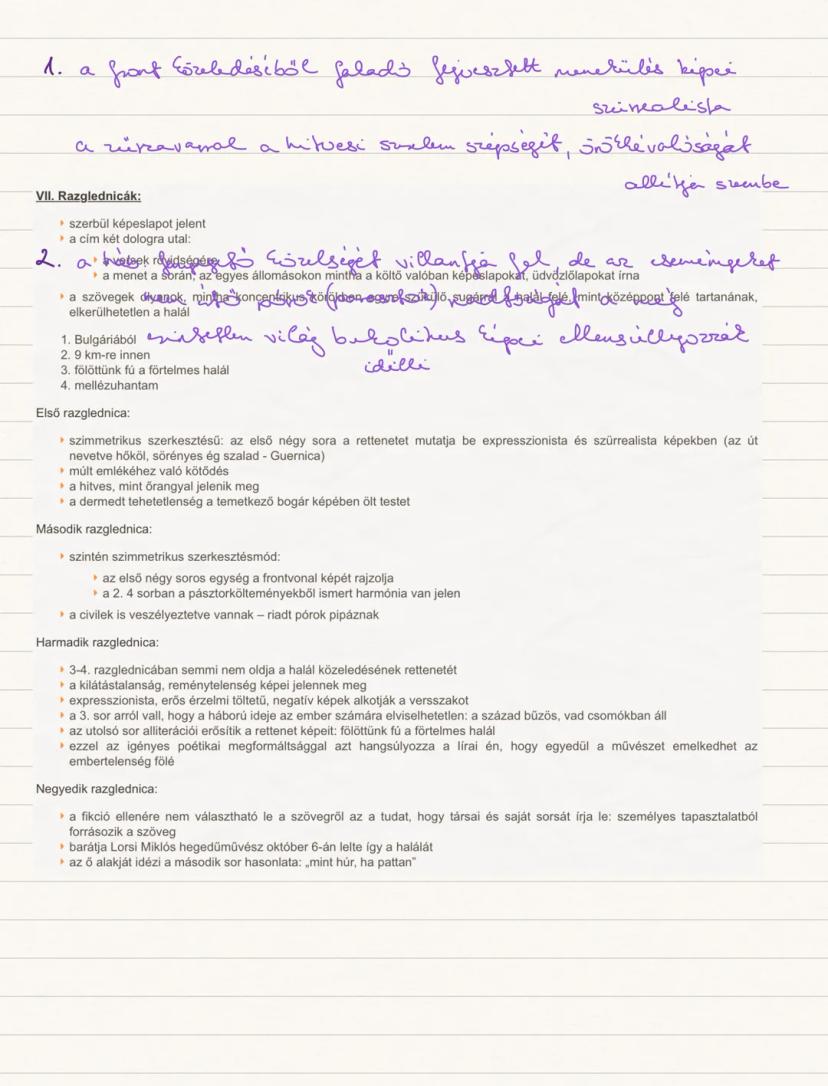 1. a front közeledéséből faladó fejvesztett menekülés képei
szürrealista
a zűrzavarral a hitvesi szerelem szépségét, örökkévalóságát
állítja szembe
VII. Razglednicák:
szerbül képeslapot jelent
a cím két dologra utal:
2. a közelségét villantja fel, de az eseményeket
a menet a során, az egyes állomásokon mintha a költő valóban képeslapokat, üdvözlőlapokat írna
a szövegek olyanok, mintha koncentrikus körökben egyre szűkülő sugárral a halál felé, mint középpont felé tartanának,
elkerülhetetlen a halál
1. Bulgáriából
világ bukolikus képei ellensúlyozzák
2. 9 km-re innen
idilli
3. fölöttünk fú a förtelmes halál
4. mellézuhantam
Első razglednica:
szimmetrikus szerkesztésű: az első négy sora a rettenetet mutatja be expresszionista és szürrealista képekben (az út
nevetve hőköl, sörényes ég szalad - Guernica)
múlt emlékéhez való kötődés
a hitves, mint őrangyal jelenik meg
a dermedt tehetetlenség a temetkező bogár képében ölt testet
Második razglednica:
szintén szimmetrikus szerkesztésmód:
az első négy soros egység a frontvonal képét rajzolja
a 2. 4 sorban a pásztorkölteményekből ismert harmónia van jelen
a civilek is veszélyeztetve vannak – riadt pórok pipáznak
Harmadik razglednica:
3-4. razglednicában semmi nem oldja a halál közeledésének rettenetét
a kilátástalanság, reménytelenség képei jelennek meg
expresszionista, erős érzelmi töltetű, negatív képek alkotják a versszakot
a 3. sor arról vall, hogy a háború ideje az ember számára elviselhetetlen: a század bűzös, vad csomókban áll
az utolsó sor alliterációi erősítik a rettenet képeit: fölöttünk fú a förtelmes halál
ezzel az igényes poétikai megformáltsággal azt hangsúlyozza a lírai én, hogy egyedül a művészet emelkedhet az
embertelenség fölé
Negyedik razglednica:
a fikció ellenére nem választható le a szövegről az a tudat, hogy társai és saját sorsát írja le: személyes tapasztalatból
forrásozik a szöveg
barátja Lorsi Miklós hegedűművész október 6-án lelte így a halálát
az ő alakját idézi a második sor hasonlata: „mint húr, ha pattan”